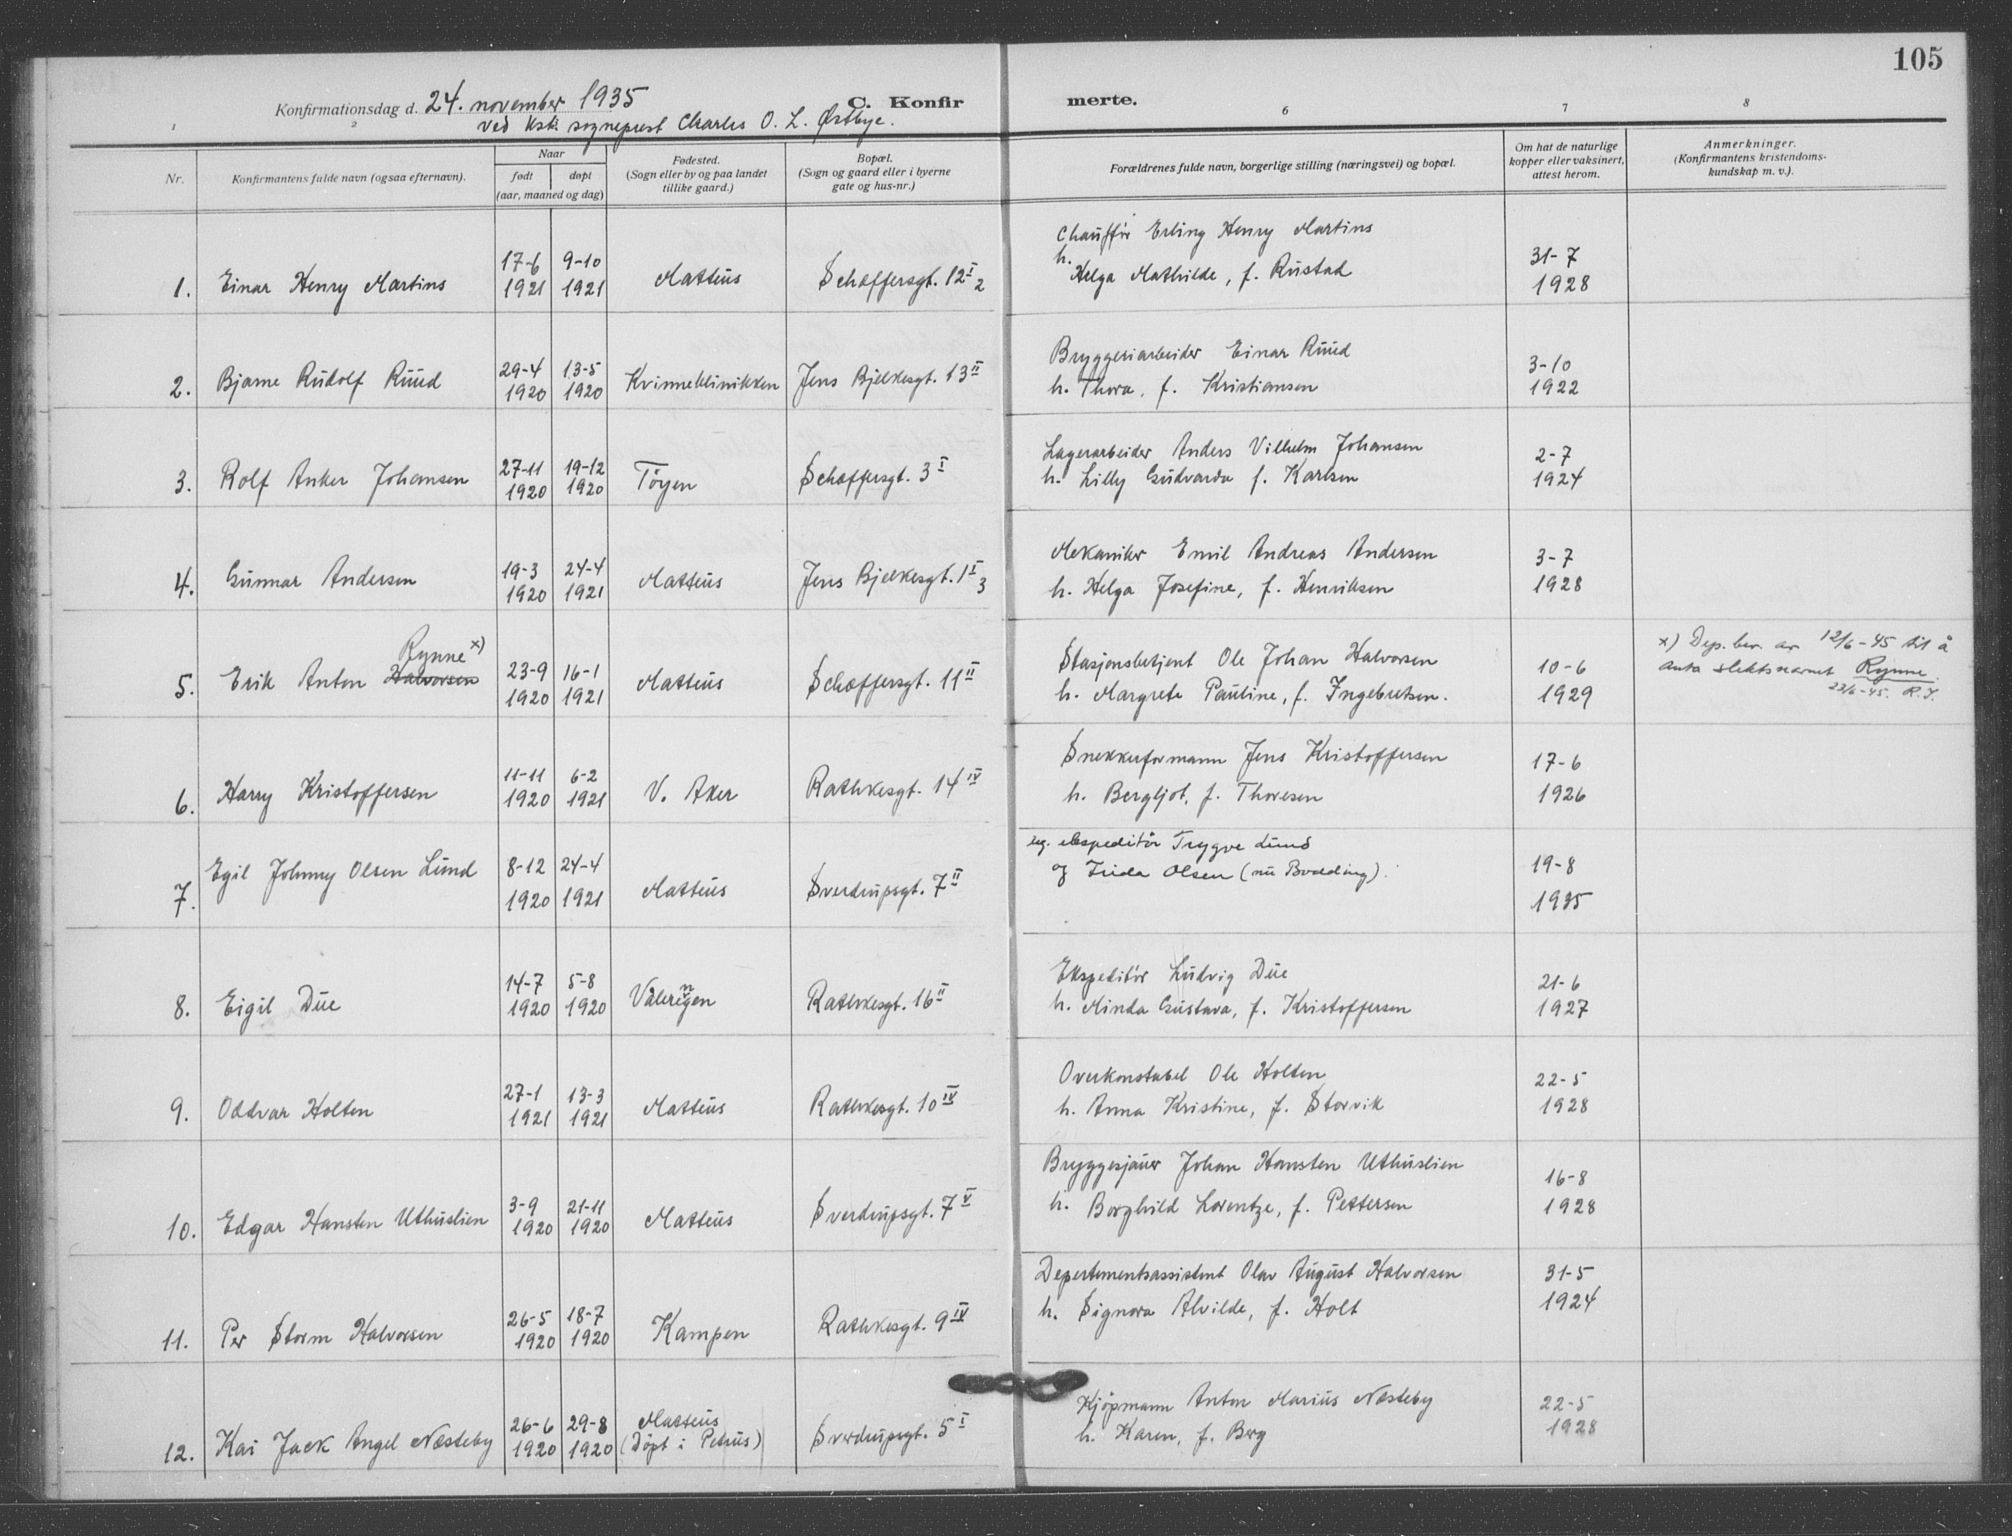 105
Konfirmationsdag d. 24. november 1935 C. Konfir merte.
ved kst. sogneprest Charles O. L. Østbye.
1 2 6 7 8
Nr. Konfirmantens fulde navn (ogsaa efternavn). Naar født døpt (aar, maaned og dag)
Fødested. (Sogn eller by og paa landet tillike gaard.)
Bopæl. (Sogn og gaard eller i byerne gate og hus-nr.)
Forældrenes fulde navn, borgerlige stilling (næringsvei) og bopæl.
Om hat de naturlige kopper eller vaksinert, attest herom.
Anmerkninger. (Konfirmantens kristendoms-kundskap m. v.).
1. Einar Henry Martins 17-6 1921 9-10 1921 Matteus Schæffersgt. 12 I 2
Chauffør Erling Henry Martins
h. Helga Mathilde, f. Rustad
31-7 1928
2. Bjarne Rudolf Ruud 29-4 1920 13-5 1920 Kvinneklinikken Jens Bjelkesgt. 13 II
Bryggeriarbeider Einar Ruud
h. Thora, f. Kristiansen
3-10 1922
3. Rolf Anker Johansen 27-11 1920 19-12 1920 Tøyen Schæffersgt. 3 I
Lagerarbeider Anders Vilhelm Johansen
h. Lilly Gudvarda f. Karlsen
2-7 1924
4. Gunnar Andersen 19-3 1920 24-4 1921 Matteus Jens Bjelkesgt. 1 I 3
Mekaniker Emil Andreas Andersen
h. Helga Josefine, f. Henriksen
3-7 1928
Rynne x)
5. Erik Anton Halvorsen 23-9 1920 16-1 1921 Matteus Schæffersgt. 11 II
Stasjonsbetjent Ole Johan Halvorsen
h. Margrete Pauline, f. Ingebretsen.
10-6 1929
x) Dep. bev. av 12/6-45 til å
anta slektsnavnet Rynne.
23/6-45. R. J.
6. Harry Kristoffersen 11-11 1920 6-2 1921 V. Aker Rathkesgt. 14 IV
Snekkerformann Jens Kristoffersen
h. Bergljot, f. Thoresen
17-6 1926
7. Egil Johnny Olsen Lund 8-12 1920 24-4 1921 Matteus Sverdrupsgt. 7 II
ekspeditør Trygve Lund
og Frida Olsen (nu Bødding).
19-8 1935
8. Eigil Due 14-7 1920 5-8 1920 Vålerengen Rathkesgt. 16 II
Ekspeditør Ludvig Due
h. Minda Gustava, f. Kristoffersen
21-6 1927
9. Oddvar Holten 27-1 1921 13-3 1921 Matteus Rathkesgt. 10 IV
Overkonstabel Ole Holten
h. Anna Kristine, f. Storvik
22-5 1928
10. Edgar Hansten Uthuslien 3-9 1920 21-11 1920 Matteus Sverdrupsgt. 7 V
Bryggesjauer Johan Hansten Uthuslien
h. Borghild Lorentze, f. Pettersen
16-8 1928
11. Per Storm Halvorsen 26-5 1920 18-7 1920 Kampen Rathkesgt. 9 IV
Departementsassistent Olav August Halvorsen
h. Signora Alvilde, f. Holt
31-5 1924
12. Kai Jack Angel Næsteby 26-6 1920 29-8 1920 Matteus (Døpt i Petrus) Sverdrupsgt. 5 I
Kjøpmann Anton Marius Næsteby
h. Karen, f. Berg
22-5 1928